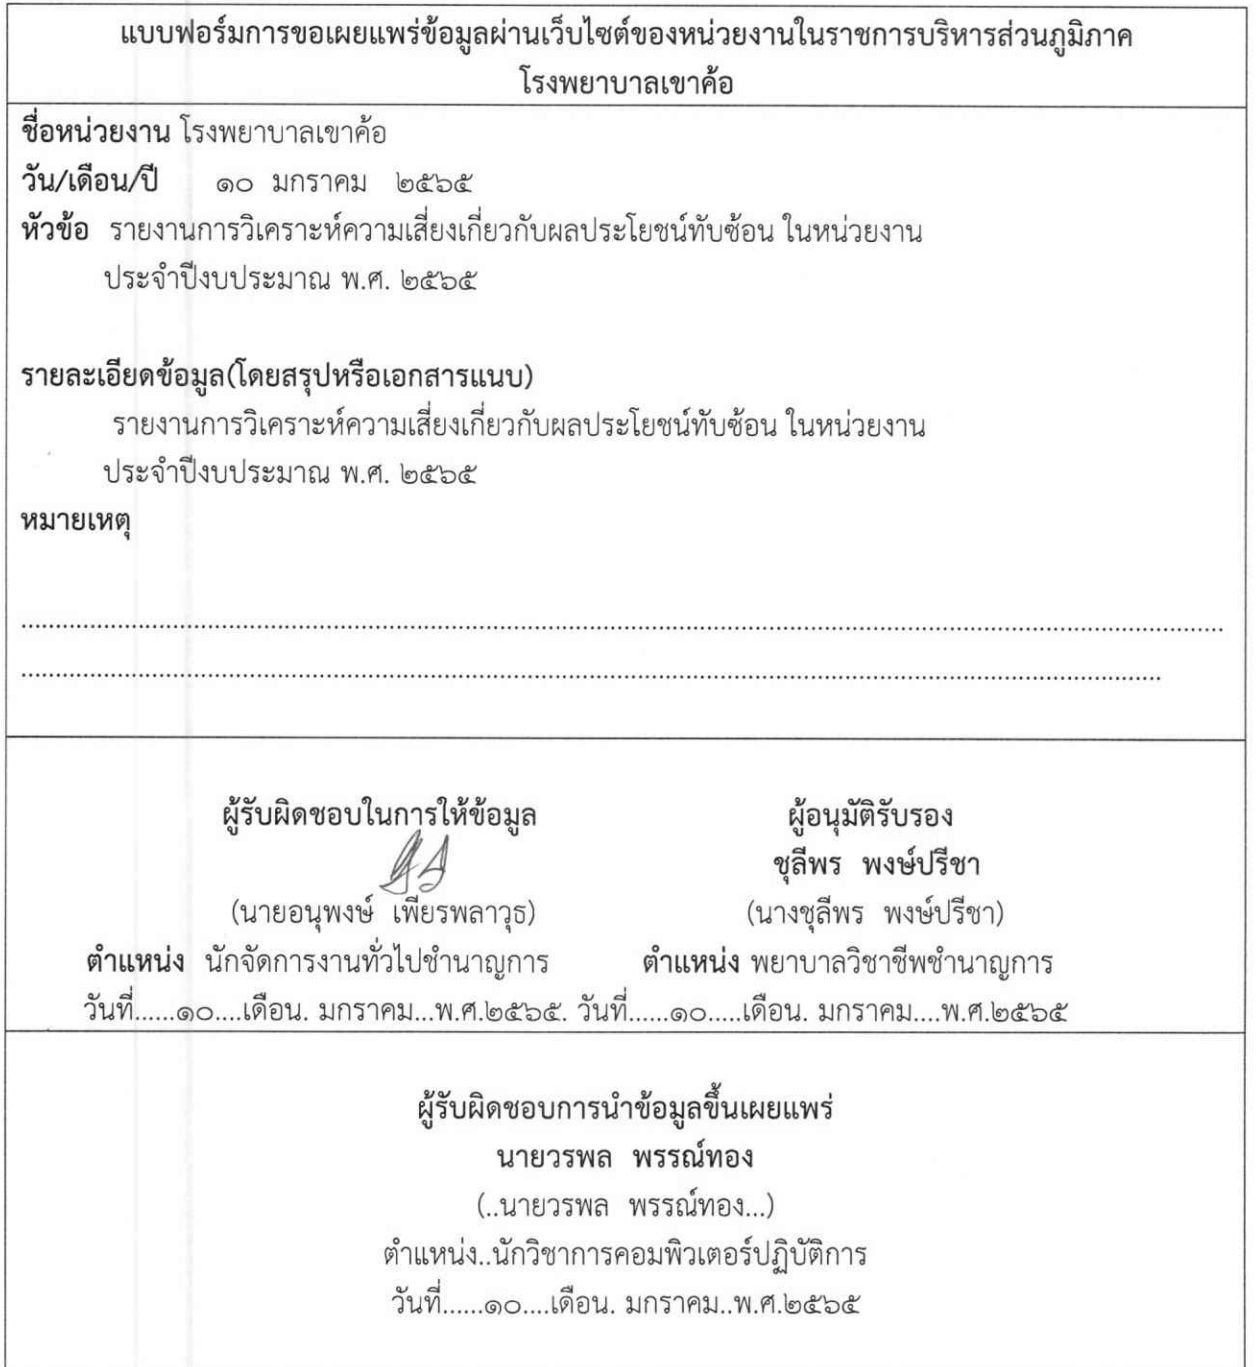 แบบฟอร์มการขอเผยแพร่ข้อมูลผ่านเว็บไซต์ของหน่วยงานในราชการบริหารส่วนภูมิภาค
โรงพยาบาลเขาค้อ
ชื่อหน่วยงาน โรงพยาบาลเขาค้อ
วัน/เดือน/ปี ๑๐ มกราคม ๒๕๖๕
หัวข้อ รายงานการวิเคราะห์ความเสี่ยงเกี่ยวกับผลประโยชน์ทับซ้อน ในหน่วยงาน
ประจำปีงบประมาณ พ.ศ. ๒๕๖๕
รายละเอียดข้อมูล(โดยสรุปหรือเอกสารแนบ)
รายงานการวิเคราะห์ความเสี่ยงเกี่ยวกับผลประโยชน์ทับซ้อน ในหน่วยงาน
ประจำปีงบประมาณ พ.ศ. ๒๕๖๕
หมายเหตุ
ผู้รับผิดชอบในการให้ข้อมูล ผู้อนุมัติรับรอง
ชุลีพร พงษ์ปรีชา
(นายอนุพงษ์ เพียรพลาวุธ) (นางชุลีพร พงษ์ปรีชา)
ตำแหน่ง นักจัดการงานทั่วไปชำนาญการ ตำแหน่ง พยาบาลวิชาชีพชำนาญการ
วันที่......๑๐....เดือน. มกราคม...พ.ศ.๒๕๖๕. วันที่......๑๐.....เดือน. มกราคม....พ.ศ.๒๕๖๕
ผู้รับผิดชอบการนำข้อมูลขึ้นเผยแพร่
นายวรพล พรรณ์ทอง
(..นายวรพล พรรณ์ทอง...)
ตำแหน่ง..นักวิชาการคอมพิวเตอร์ปฏิบัติการ
วันที่......๑๐....เดือน. มกราคม..พ.ศ.๒๕๖๕